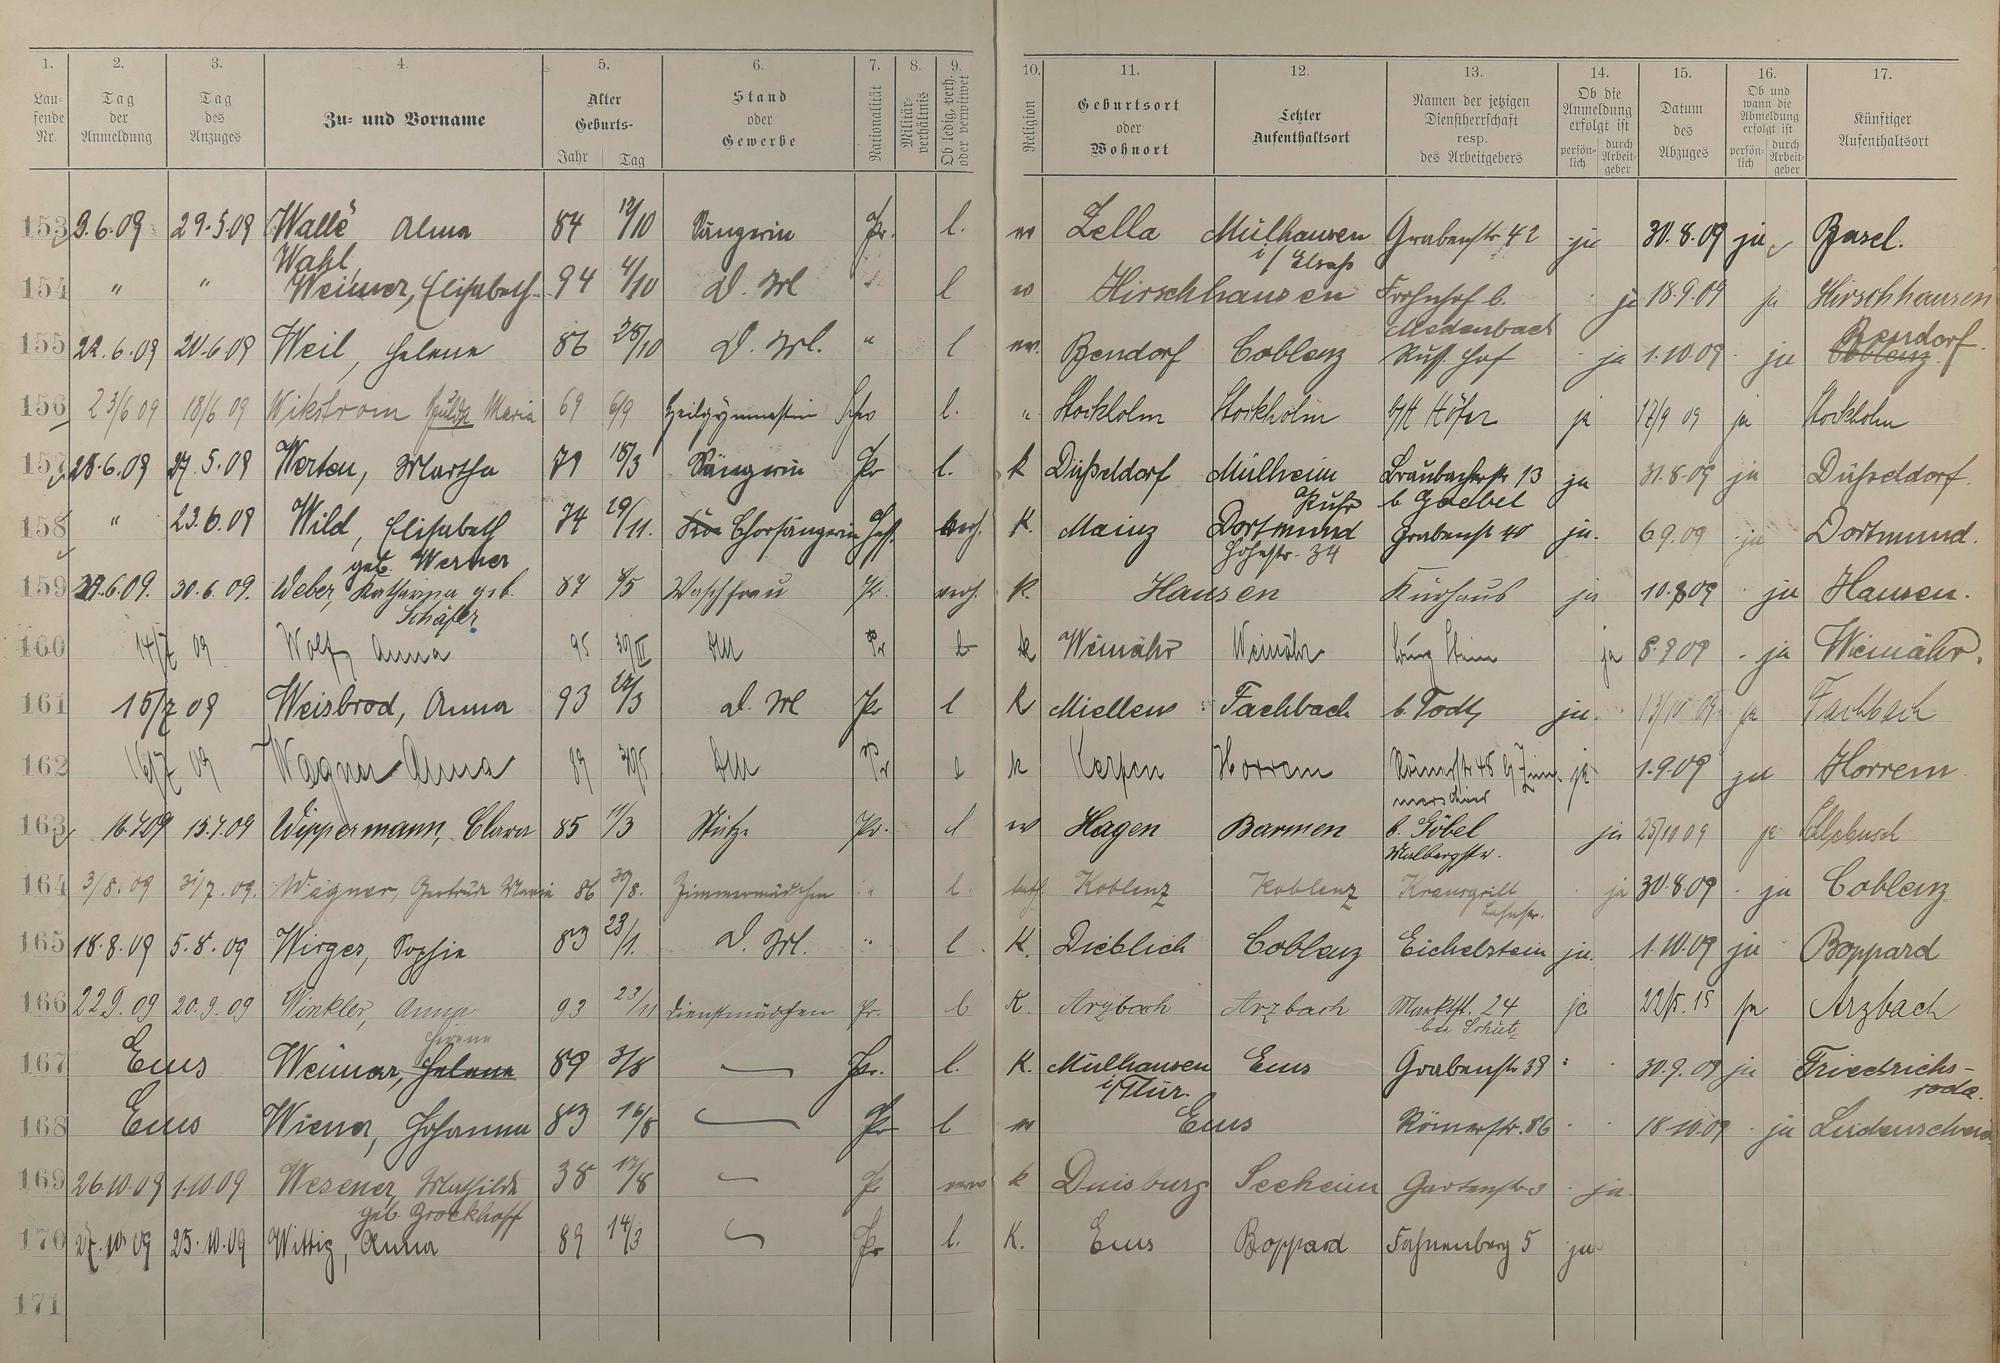 1. 2. 3. 4. 5. 6. 7. 8. 9. 10. 11. 12. 13. 14. 15. 16. 17.
Lau-fende Nr. Tag der Anmeldung Tag des Anzuges Zu- und Vorname Alter Geburts- Jahr Tag Stand oder Gewerbe Nationalität Militär-verhältnis Ob ledig, verh. oder verwitwet Religion Geburtsort oder Wohnort Letzter Aufenthaltsort Namen der jetzigen Dienstherrschaft resp. des Arbeitgebers Ob die Anmeldung erfolgt ist persön-lich durch Arbeit-geber Datum des Abzuges Ob und wann die Abmeldung erfolgt ist persön-lich durch Arbeit-geber Künftiger Aufenthaltsort
153 9.6.09 29.5.09 Wallé Alma 84 12/10 Sängerin Pr. l. Zella Mülhausen i/Elsaß Grabenstr. 42 ja 30.8.09 ja Basel.
Wahl
154 " " Weimer, Elisabeth 94 4/10 D. Ml " l Hirschhausen Frohnhof b. Medenbach ja 18.9.09 ja Hirschhausen
155 22.6.09 20.6.09 Weil, Helene 86 28/10 D. Ml. " l Bendorf Coblenz Russ. Hof ja 1.10.09 ja Coblenz Bendorf
156 23/6 09 18/6 09 Wikstrom Hulda Maria 69 6/9 Heilgymnastin l. " Stockholm Stockholm Höfer ja 17/9 09 ja Stockholm
157 28.6.09 27.5.09 Werten, Martha 79 18/3 Sängerin Pr l. k Düsseldorf Mülheim Ruhr Braubacherstr 13 b. Goebel ja 31.8.09 ja Düsseldorf.
158 " 23.6.09 Wild, Elisabeth geb. Werner 74 29/11. Chorsängerin Hess. verh. K. Mainz Dortmund Hohestr. 34 Grabenstr 40 ja. 6.9.09 ja Dortmund.
159 30.6.09. 30.6.09. Weber, Katharina geb. Schäfer 87 8/5 Waschfrau Pr. verh. K. Hausen Kurhaus ja 10.8.09 ja Hausen.
160 14/7 09 Wolf, Anna 95 30/III DM Pr l k Weinähr Weinähr Stein ja 8.9.09 ja Weinähr.
161 15/7 09 Weisbrod, Anna 93 22/3 D. Ml Pr l K Miellen Fachbach b. Todt, ja. ja Fachbach
162 16/7 09 Wagner Anna 89 30/5 DM Pr l k Kerpen Horrem Römerstr 48 Zimmerschied ja 1.9.09 ja Horrem
163 16.7.09 15.7.09 Wippermann, Clara 85 11/3 Stütze Pr. l Hagen Barmen b. Göbel Malbergstr. ja 25/10 09 ja
164 3/8.09 31/7.09. Wagner, Gertrude Maria 86 30/8. Zimmermädchen " l. kath. Koblenz Koblenz Lahnstr. ja 30.8.09 ja Coblenz
165 18.8.09 5.8.09 Wirges, Sophie 83 23/1. D. Ml. " l. K. Dieblich Coblenz Eichelstein ja. 1.10.09 ja Boppard
166 22.9.09 20.9.09 Winkler, Anna 93 23/11 Dienstmädchen Pr. l K. Arzbach Arzbach Marktstr. 24 bei Schütz ja ja Arzbach
167 Ems Weimar, Helene Irene 89 3/8 Pr. l. K. Mülhausen i/Tür. Ems Grabenstr 39 30.9.09 ja Friedrichs-roda.
168 Ems Wiener, Johanna 83 16/8 Pr l Ems Römerstr. 86 18.10.09 ja
169 26.10.09 1.10.09 Wesener, Mathilde geb. Grockhoff 38 17/8 Pr verw k Duisburg Seeheim Gartenstr 3 ja.
170 27.10.09 25.10.09 Wittig, Anna 89 14/3 Pr l. K. Ems Boppard Fahnenberg 5 ja
171